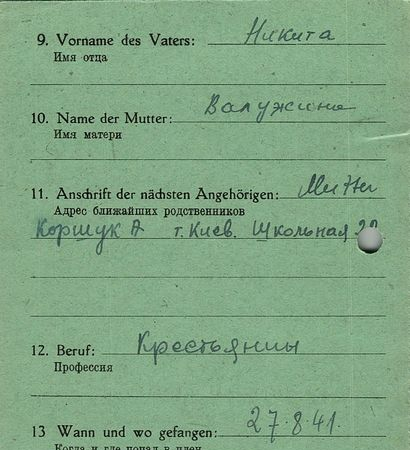 9. Vorname des Vaters: Никита
Имя отца
10. Name der Mutter: Валужине
Имя матери
11. Anschrift der nächsten Angehörigen: Mutter
Адрес ближайших родственников
Коршук А г. Киев. Школьная
12. Beruf: Крестьянин
Профессия
27.8.41.
13 Wann und wo gefangen:
Когда и где попал в плен